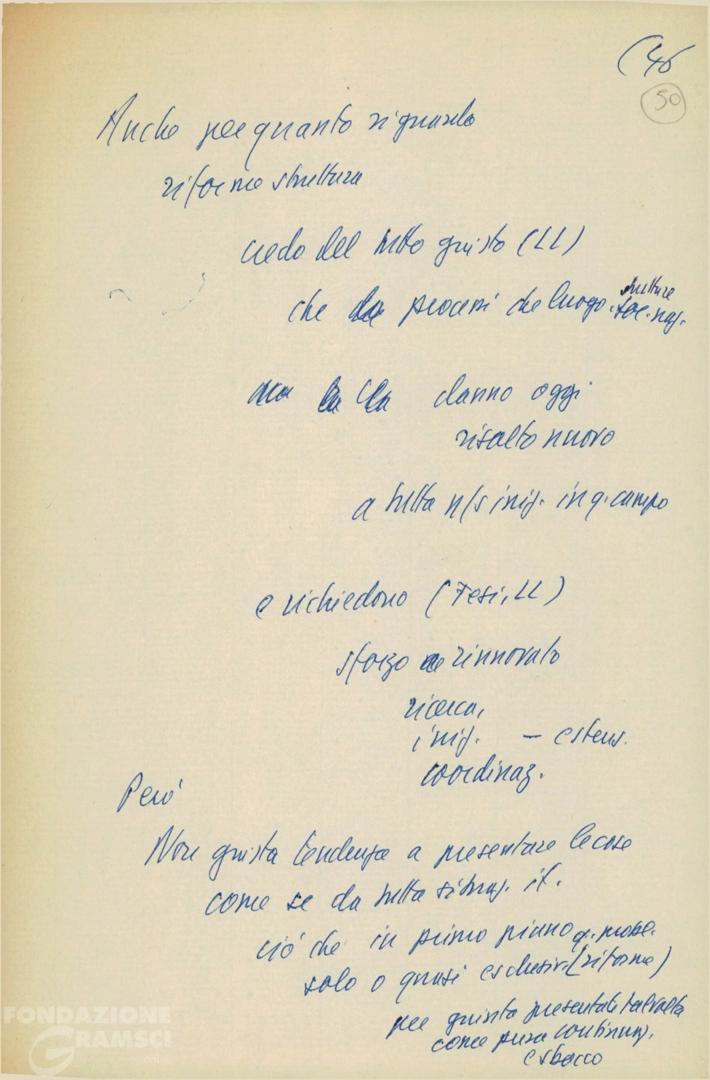 (46
50
Anche per quanto riguarda
riforme struttura
credo del tutto giusto (LL)
che processi che luogo strutture
ma danno oggi
risalto nuovo
a tutta n/s iniz. in q. campo
e richiedono (Tesi, LL)
sforzo rinnovato
ricerca,
iniz. – estens.
coordinaz.
Però
Non giusta tendenza a presentare le cose
come se da tutta situaz. it.
ciò che in primo piano q. probl.
solo o quasi esclusiv. (riforme)
per giunta presentate talvolta
come pura continuaz.
e sbocco
FONDAZIONE
GRAMSCI